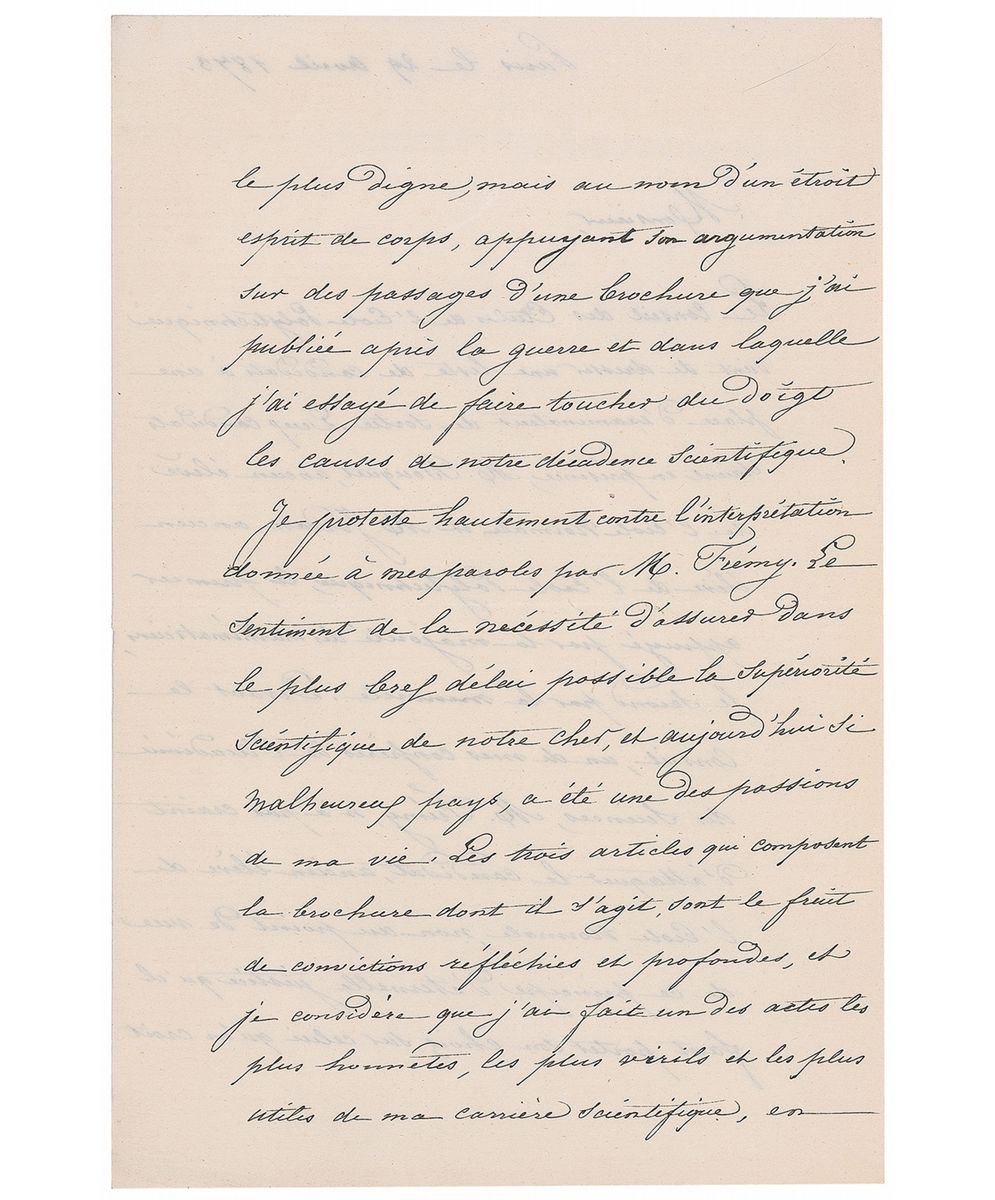 le plus digne, mais au nom d'un étroit
esprit de corps, appuyant son argumentation
sur des passages d'une brochure que j'ai
publiée après la guerre et dans laquelle
j'ai essayé de faire toucher du doigt
les causes de notre décadence scientifique.
Je proteste hautement contre l'interprétation
donnée à mes paroles par M. Frémy. Le
sentiment de la nécessité d'assurer dans
le plus bref délai possible la supériorité
scientifique de notre cher, et aujourd'hui si
malheureux pays, a été une des passions
de ma vie. Les trois articles qui composent
la brochure dont il s'agit, sont le fruit
de convictions réfléchies et profondes, et
je considère que j'ai fait un des actes les
plus honnêtes, les plus virils et les plus
utiles de ma carrière scientifique, en